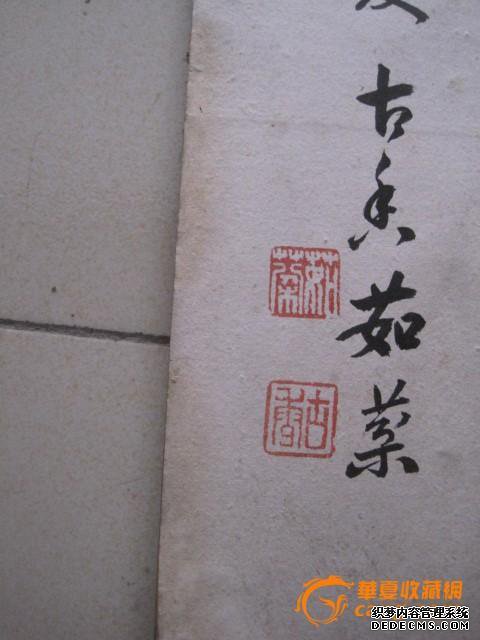 古香茹棻
茹棻
古香
華夏收藏網
织梦内容管理系统
DEDECMS.COM